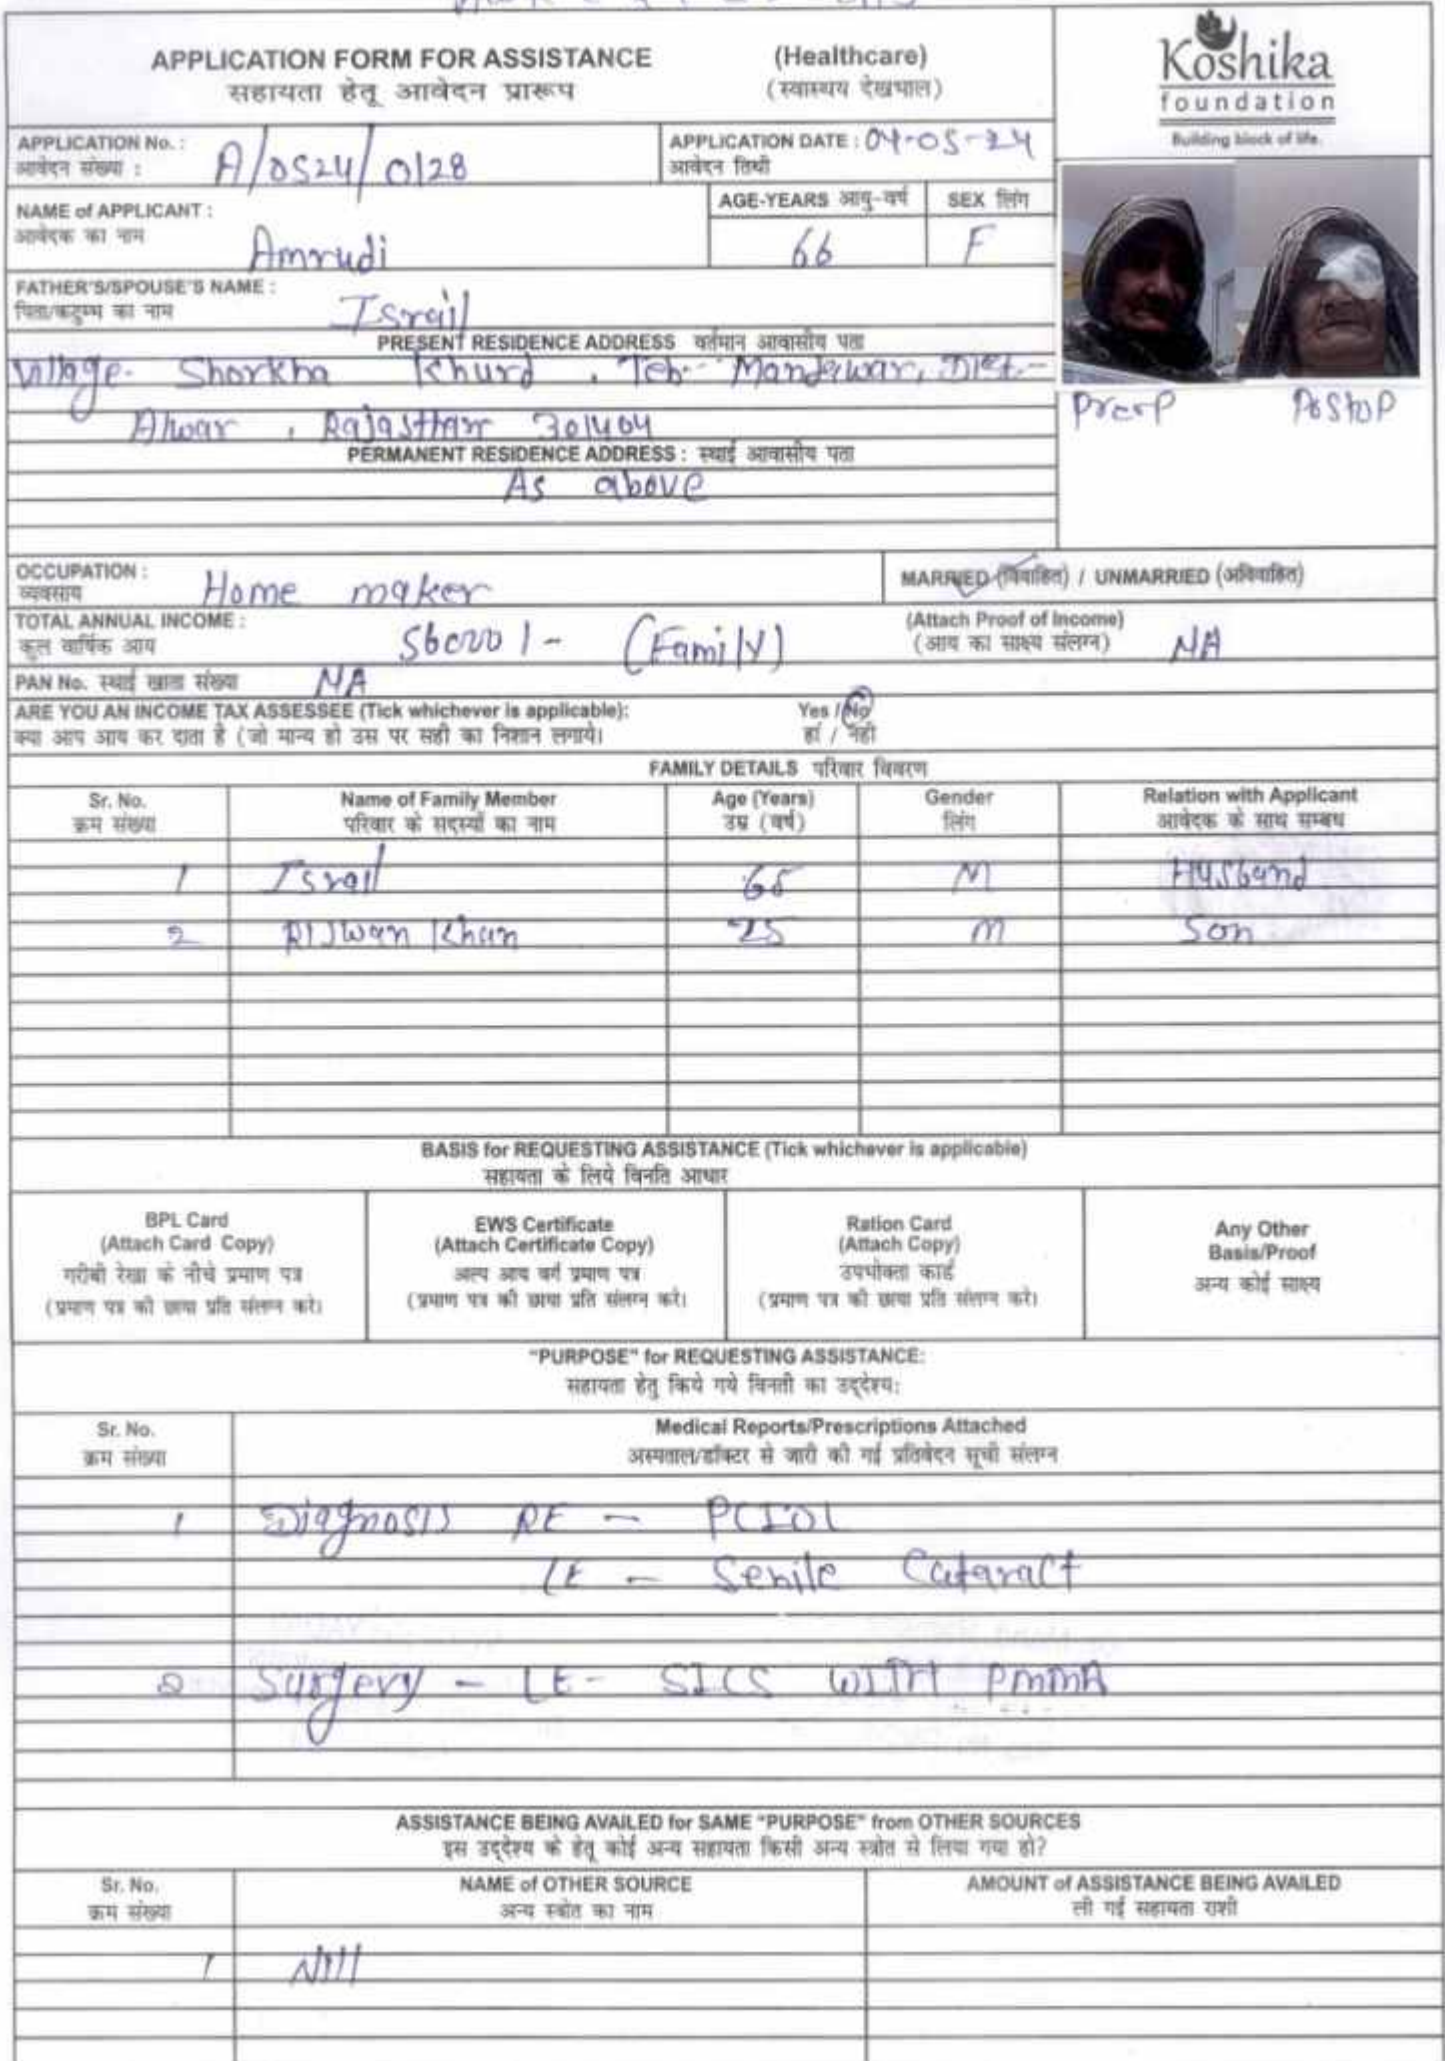 APPLICATION FORM FOR ASSISTANCE (Healthcare)
सहायता हेतू आवेदन प्रारूप (स्वास्थय देखभाल)
Koshika
foundation
Building block of life.
APPLICATION No. : A/0524/0128
आवेदन संख्या :
APPLICATION DATE : 04-05-24
आवेदन तिथी
NAME of APPLICANT : Amrudi
आवेदक का नाम
AGE-YEARS आयु-वर्ष 66
SEX लिंग F
FATHER'S/SPOUSE'S NAME : Israil
पिता/कटुम्ब का नाम
PRESENT RESIDENCE ADDRESS वर्तमान आवासीय पता
Village- Shorkha Khurd , Teh- Mandawar, Dist-
Alwar , Rajasthan 301404
Preop Postop
PERMANENT RESIDENCE ADDRESS : स्थाई आवासीय पता
As above
OCCUPATION : Home maker
व्यवसाय
MARRIED (विवाहित) / UNMARRIED (अविवाहित)
TOTAL ANNUAL INCOME : 56000/- (Family)
कुल वार्षिक आय
(Attach Proof of Income) NA
(आय का साक्ष्य संलग्न)
PAN No. स्थाई खाता संख्या NA
ARE YOU AN INCOME TAX ASSESSEE (Tick whichever is applicable): Yes / No
क्या आप आय कर दाता है (जो मान्य हो उस पर सही का निशान लगाये। हां / नहीं
FAMILY DETAILS परिवार विवरण
Sr. No. Name of Family Member Age (Years) Gender Relation with Applicant
क्रम संख्या परिवार के सदस्यों का नाम उम्र (वर्ष) लिंग आवेदक के साथ सम्बध
1 Israil 65 M Husband
2 Rijwan Khan 25 M Son
BASIS for REQUESTING ASSISTANCE (Tick whichever is applicable)
सहायता के लिये विनति आधार
BPL Card
(Attach Card Copy)
गरीबी रेखा के नीचे प्रमाण पत्र
(प्रमाण पत्र की छाया प्रति संलग्न करे।
EWS Certificate
(Attach Certificate Copy)
अल्प आय वर्ग प्रमाण पत्र
(प्रमाण पत्र की छाया प्रति संलग्न करे।
Ration Card
(Attach Copy)
उपभोक्ता कार्ड
(प्रमाण पत्र की छाया प्रति संलग्न करे।
Any Other
Basis/Proof
अन्य कोई साक्ष्य
"PURPOSE" for REQUESTING ASSISTANCE:
सहायता हेतु किये गये विनती का उद्देश्य:
Sr. No. Medical Reports/Prescriptions Attached
क्रम संख्या अस्पताल/डॉक्टर से जारी की गई प्रतिवेदन सूची संलग्न
1 Diagnosis RE - PCIOL
LE - Senile Cataract
2 Surgery - LE- SICS WITH PMMA
ASSISTANCE BEING AVAILED for SAME "PURPOSE" from OTHER SOURCES
इस उद्देश्य के हेतू कोई अन्य सहायता किसी अन्य स्त्रोत से लिया गया हो?
Sr. No. NAME of OTHER SOURCE AMOUNT of ASSISTANCE BEING AVAILED
क्रम संख्या अन्य स्त्रोत का नाम ली गई सहायता राशी
1 Nill